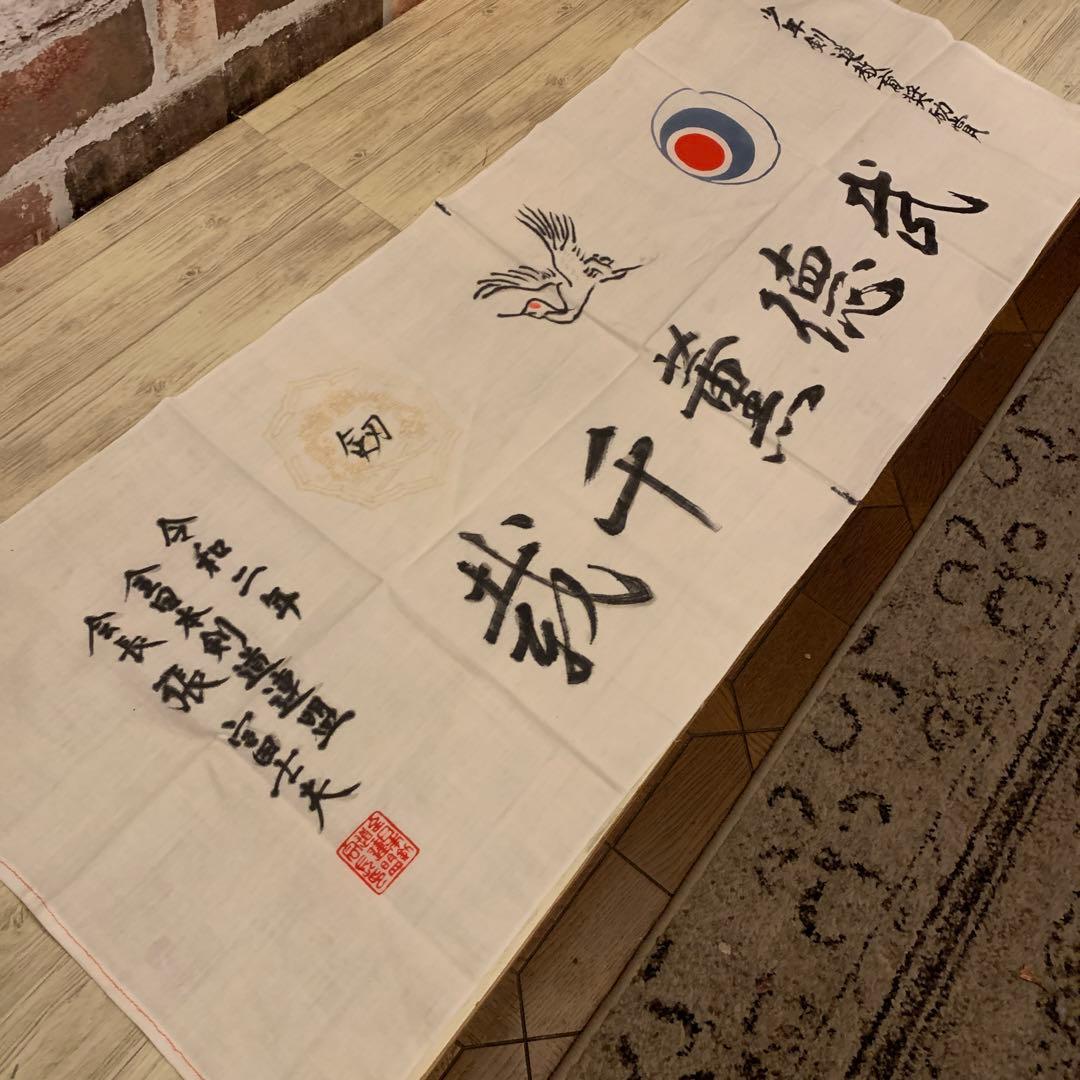 少年剣道教育奨励賞
武徳薫千載
剣
令和二年
全日本剣道連盟
会長 張富士夫